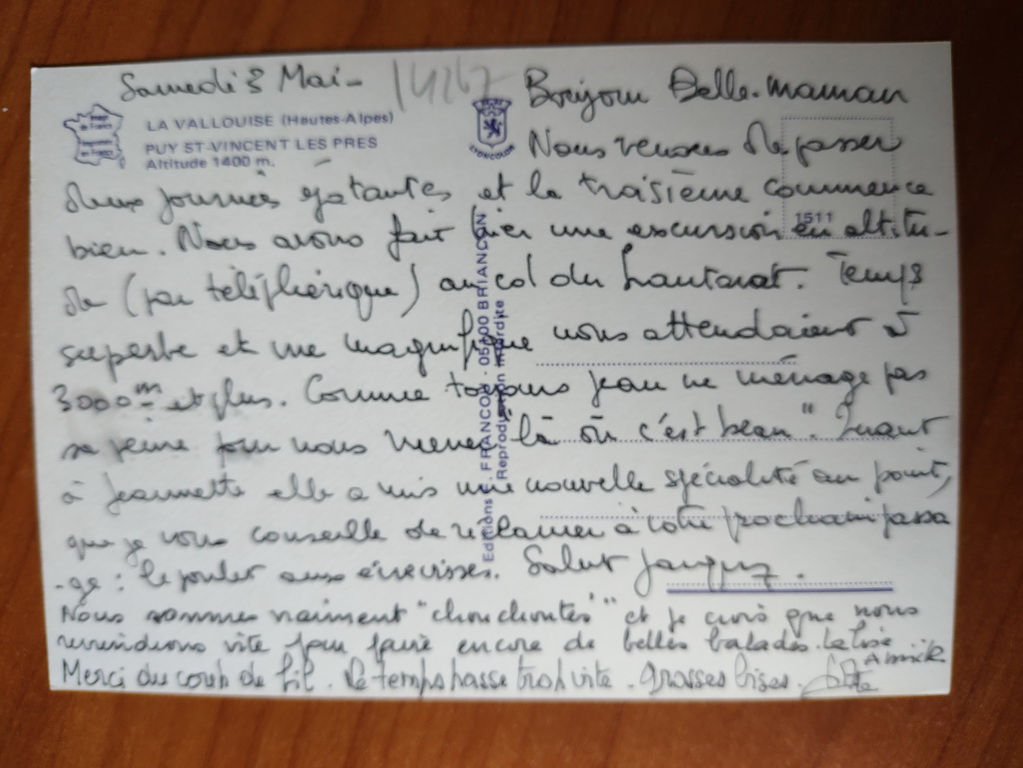 Samedi 8 Mai - 14267
Image de France
LA VALLOUISE (Hautes-Alpes)
PUY ST-VINCENT LES PRES
Altitude 1400 m.
LYONCOLOR
1511
Editions FRANCOU - 05100 BRIANCON
Reproduction interdite
Bonjour Belle-maman
Nous venons de passer
deux journées épatantes et la troisième commence
bien. Nous avons fait hier une excursion en altitu-
de (par téléphérique) au col du Lautaret. Temps
superbe et vue magnifique nous attendaient à
3000 m et plus. Comme toujours Jean ne ménage pas
sa peine pour nous mener là où "c'est beau". Quant
à Jeannette elle a mis une nouvelle spécialité au point,
que je vous conseille de réclamer à votre prochain passa
-ge : le poulet aux écrevisses. Salut Jacques.
Nous sommes vraiment "chouchoutés" et je crois que nous
reviendrons vite pour faire encore de belles balades. La bise
Annick
Merci du coup de fil. Le temps passe trop vite. Grosses bises.